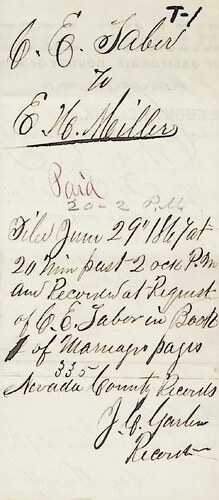 T-1
C. E. Tabor
to
E. H. Miller
Paid
20-2 P.M
Filed June 29" 1867 at
20 min past 2 ock P.M
and Recorded at Request
of C. E. Tabor in Book
1 of Marriages pages
335
Nevada County Records
J. C. Garber
Recorder